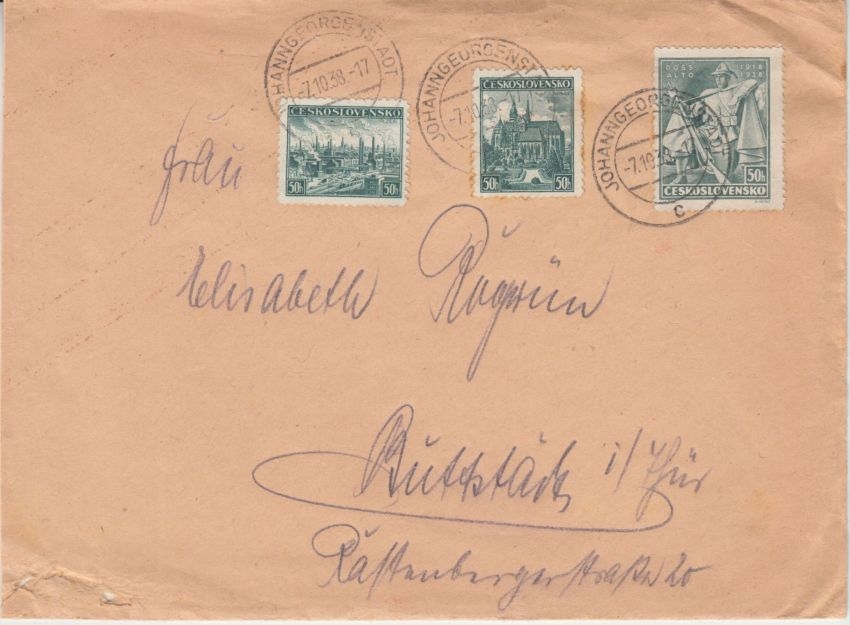 JOHANNGEORGENSTADT
-7.10.38.-17
JOHANNGEORGENST
-7.10.38
JOHANNGEORGENSTADT
-7.10.38.-17
c
ČESKOSLOVENSKO
50h 50h
ČESKOSLOVENSKO
50h 50h
DOSS ALTO
1918 1938
50h
ČESKOSLOVENSKO
Frau
Elisabeth
Buttstädt i/Thür
Rastenbergerstraße 20